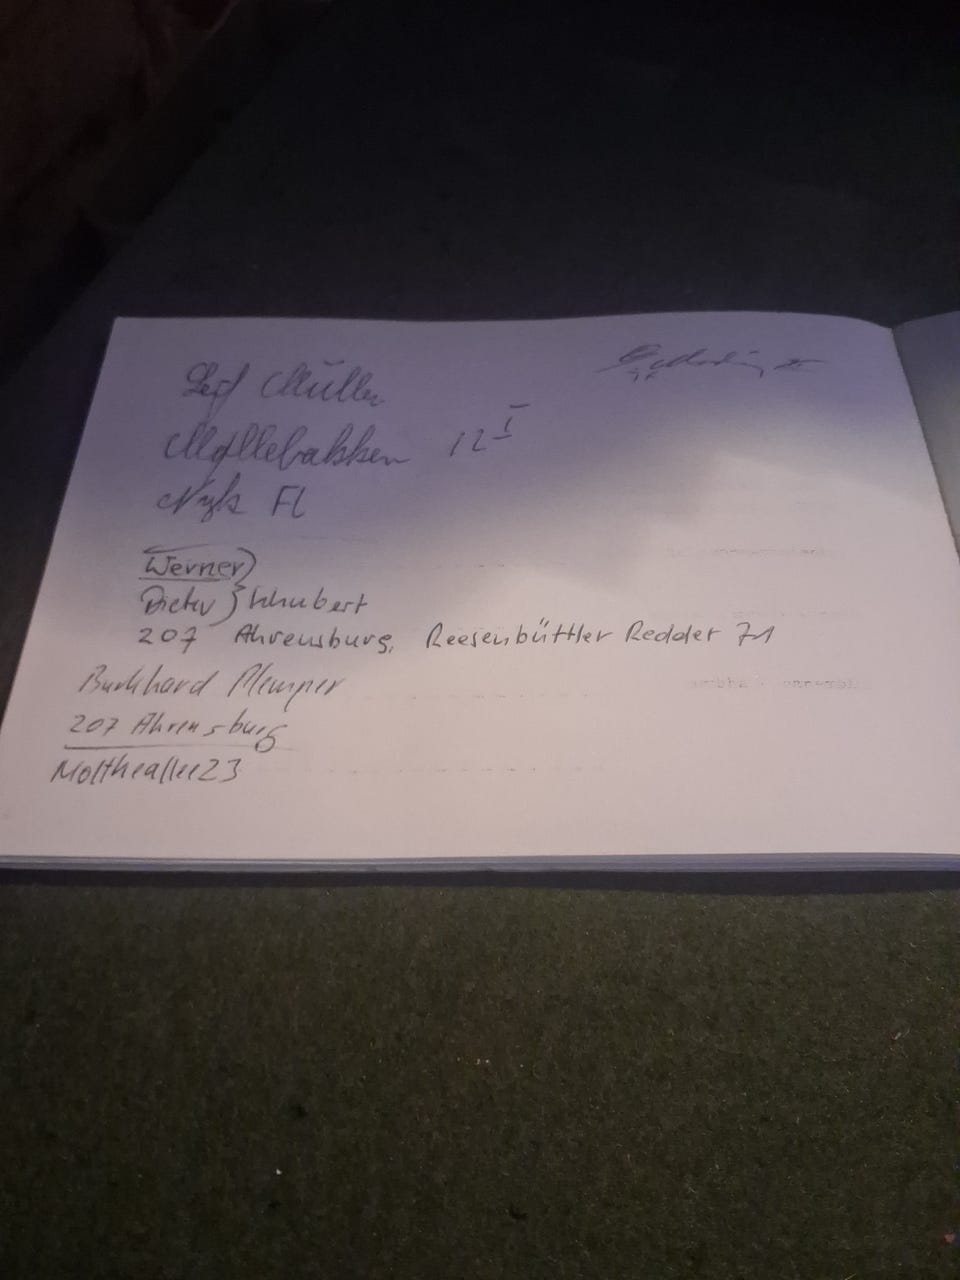 Leif Müller
Møllebakken 12 I
Nyk Fl
Werner
Dieter } Schubert
207 Ahrensburg, Reesenbüttler Redder 71
Burkhard Plemper
207 Ahrensburg
Moltkeallee 23